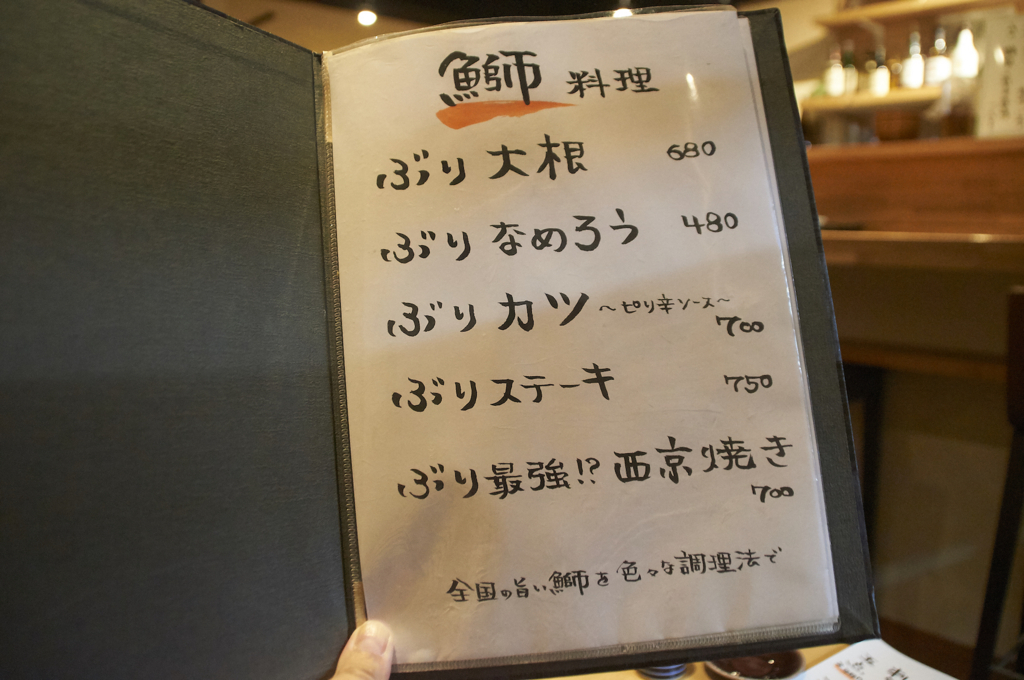 鰤 料理
ぶり 大根 680
ぶり なめろう 480
ぶり カツ ～ピリ辛ソース～
700
ぶり ステーキ 750
ぶり 最強!? 西京焼き
700
全国の旨い鰤を色々な調理法で